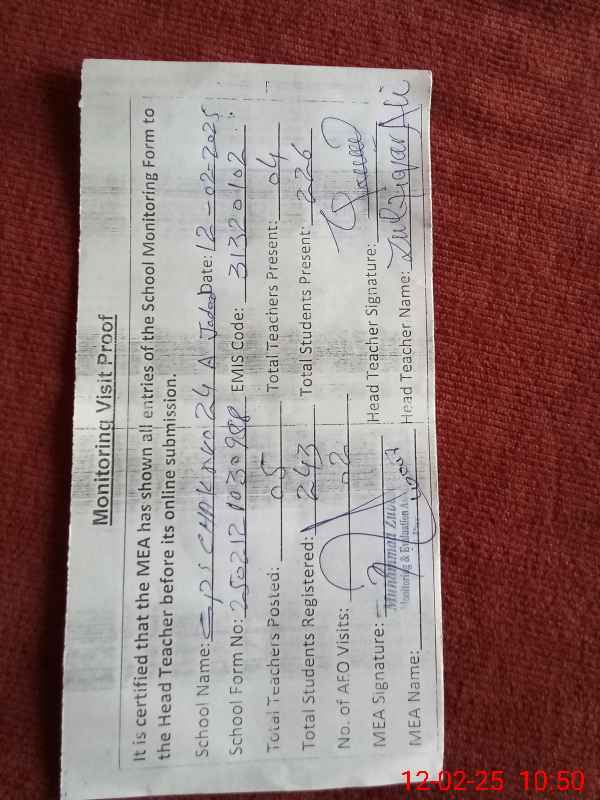 Monitoring Visit Proof
It is certified that the MEA has shown all entries of the School Monitoring Form to
the Head Teacher before its online submission.
School Name: GPS CHAK NO 24 A Date: 12-02-2025
School Form No: EMIS Code: 31320102
Total Teachers Posted: 05 Total Teachers Present: 04
Total Students Registered: 243 Total Students Present: 226
No. of AFO Visits: 02
MEA Signature: Head Teacher Signature:
Muhammad
Monitoring & Evaluation
MEA Name: Head Teacher Name: Zulfiqar Ali
12-02-25 10:50